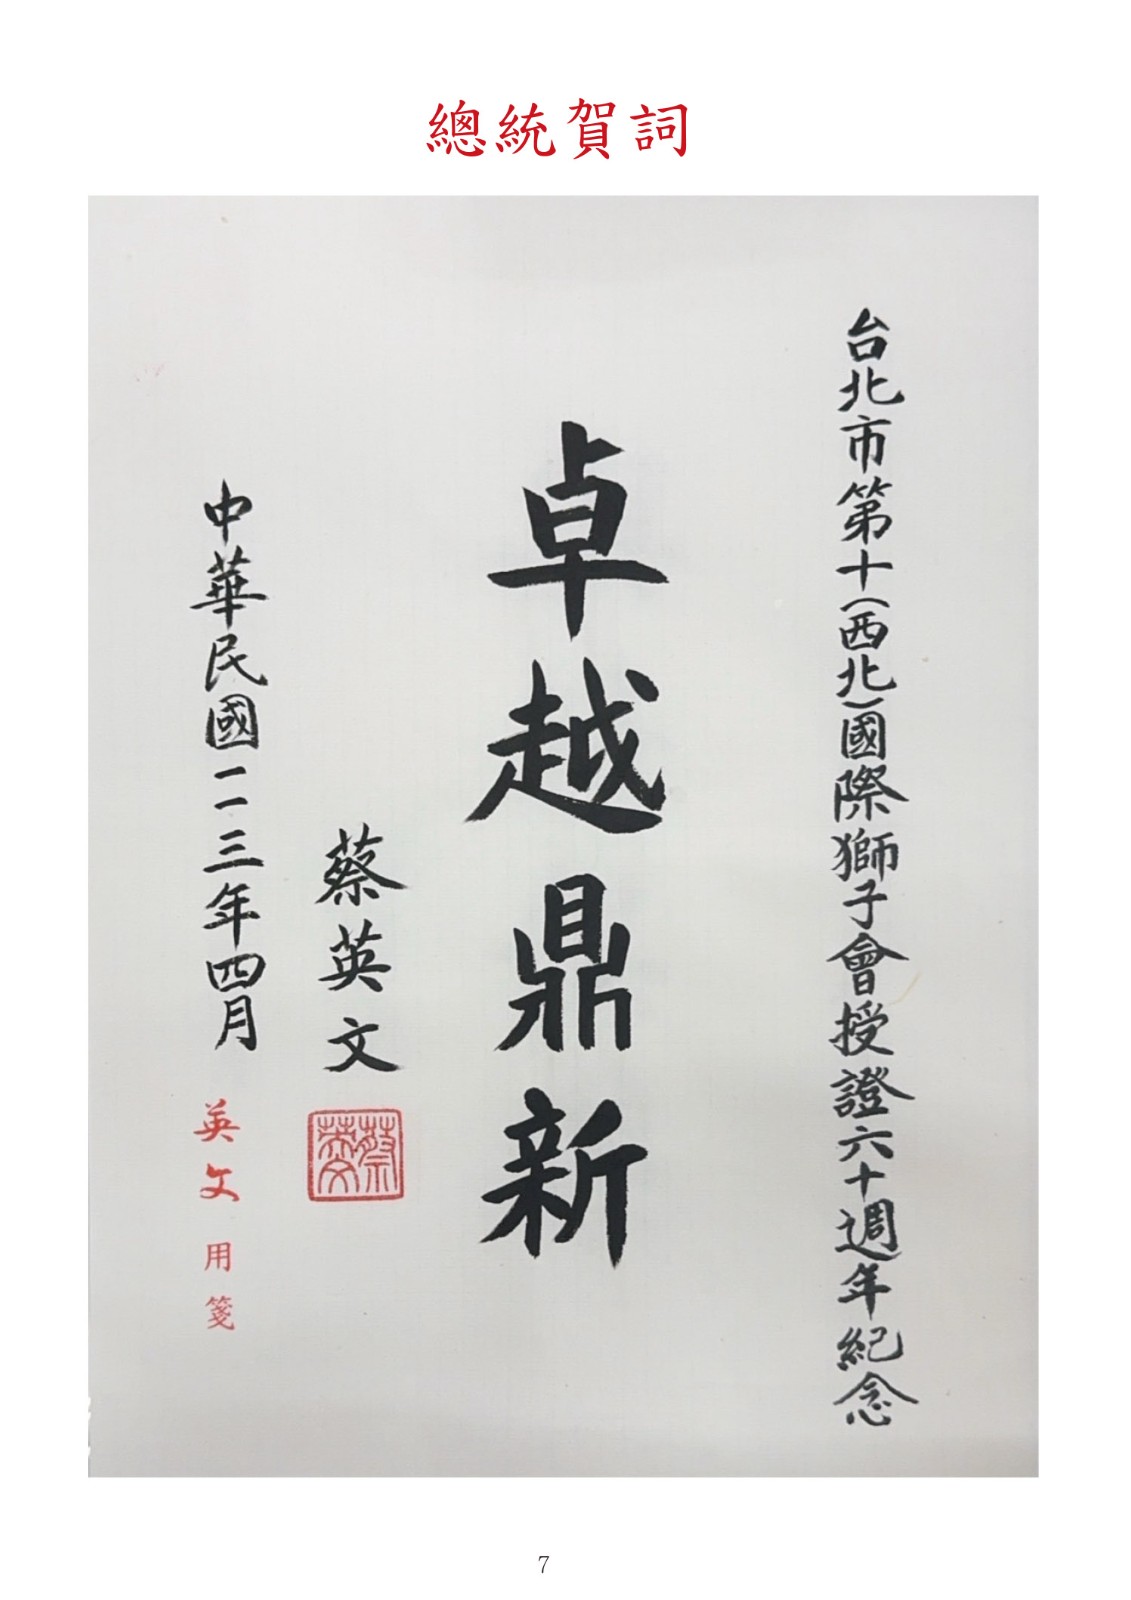 總統賀詞
台北市第十(西北)國際獅子會授證六十週年紀念
卓越鼎新
蔡英文
蔡英文
中華民國一一三年四月
英文用箋
7